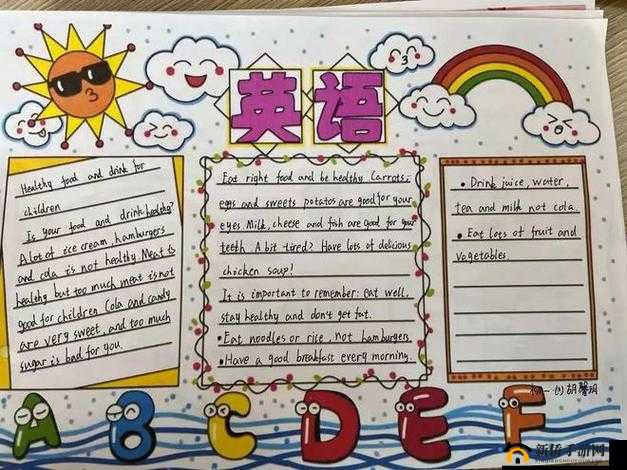 英语
Healthy food and drink for
children
Is your food and drink healthy?
A lot of ice cream, hamburgers
and cola is not healthy. Meat is
healthy but too much meat is not
good for children. Cola and candy
are very sweet, and too much
sugar is bad for you.
Eat right food and be healthy. Carrots,
eggs and sweets potatoes are good for your
eyes. Milk, cheese and fish are good for your
teeth. A bit tired? Have lots of delicious
chicken soup!
It is important to remember: eat well,
stay healthy and don't get fat.
• Eat noodles or rice, not hamburgers.
• Have a good breakfast every morning.
• Drink juice, water,
tea and milk not cola.
• Eat lots of fruit and
vegetables
A B C D E F